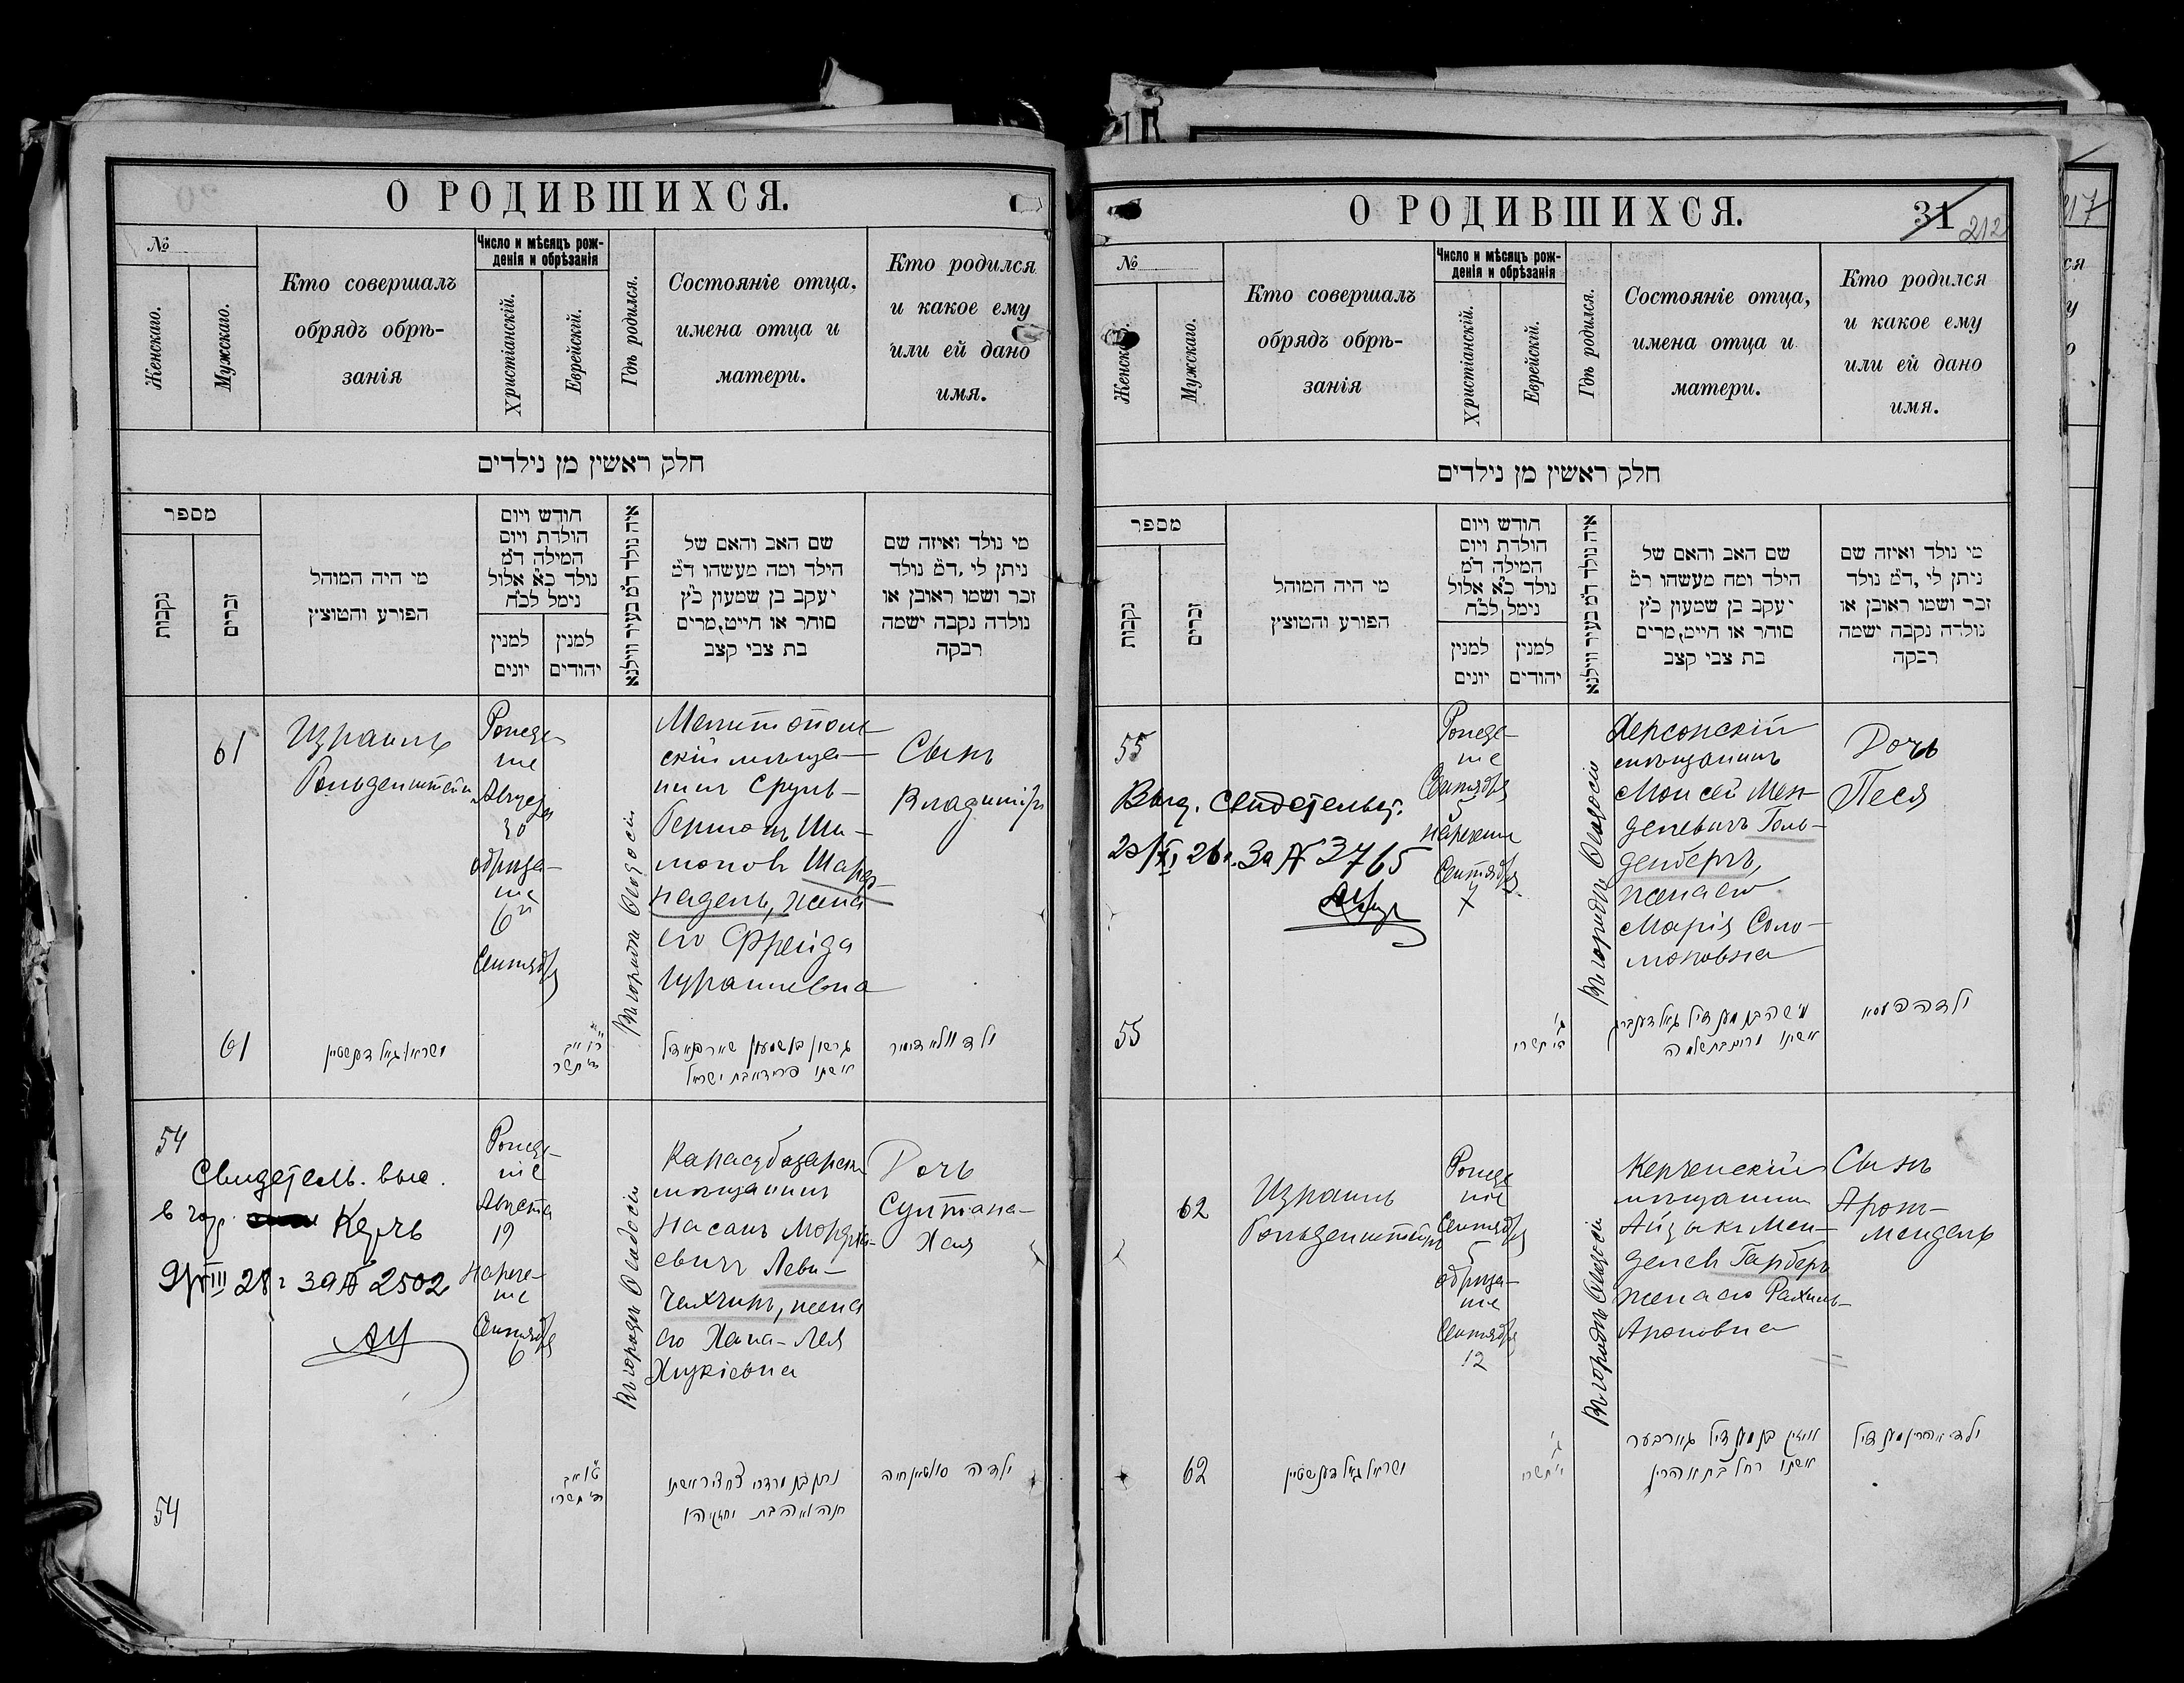 О РОДИВШИХСЯ.
№
Женскаго.
Мужскаго.
Кто совершалъ
обрядъ обрѣ-
занія
Число и мѣсяцъ рож-
денія и обрѣзанія
Христіанскій.
Еврейскій.
Гдѣ родился.
Состояніе отца,
имена отца и
матери.
Кто родился
и какое ему
или ей дано
имя.
חלק ראשין מן נילדים
מספר
נקבות
זכרים
מי היה המוהל
הפורע והמוצץ
חודש ויום
הולדת ויום
המילה ד״מ
נולד כ״א אלול
נימל לכ״ח
למנין
יונים
למנין
יהודים
איה נולד ד״מ בעיר ווילנא
שם האב והאם של
הילד ומה מעשהו ד״מ
יעקב בן שמעון כ״ץ
סוחר או חייט,מרים
בת צבי קצב
מי נולד ואיזה שם
ניתן לי ,ד״מ נולד
זכר ושמו ראובן או
נולדה נקבה ישמה
רבקה
61
Израиль
Гольденштейн
Рожде-
ніе
Августа
30
обрѣза-
ніе
6го
Сентября
Въ городѣ Ѳеодосіи
Мелитополь-
скій мѣща-
нинъ Сруль-
Гершонъ Ши-
моновъ Шарф-
надель, жена
его Фрейда
Израилевна
Сынъ
Владиміръ
61
ישראל גאלדענשטיין
גרשון בן שמעון שארפנאדיל
אשתו פריידא בת ישראל
ילד וולאדימיר
54
Свидетель. выс.
в гор. Керчь
9/VIII 28 г за № 2502
Рожде-
ніе
Августа
19
Нарече-
ніе
Сентября
6
Въ городѣ Ѳеодосіи
Карасубазарскій
мѣщанинъ
Насанъ Мордха-
евичъ Леви-
Чахчиръ, жена
его Хана-Лея
Хизкіевна
Дочь
Султана-
Хая
54
ילדה סולטאן חיה
О РОДИВШИХСЯ.
31
212
№
Женскаго.
Мужскаго.
Кто совершалъ
обрядъ обрѣ-
занія
Число и мѣсяцъ рож-
денія и обрѣзанія
Христіанскій.
Еврейскій.
Гдѣ родился.
Состояніе отца,
имена отца и
матери.
Кто родился
и какое ему
или ей дано
имя.
חלק ראשין מן נילדים
מספר
נקבות
זכרים
מי היה המוהל
הפורע והמוצץ
חודש ויום
הולדת ויום
המילה ד״מ
נולד כ״א אלול
נימל לכ״ח
למנין
יונים
למנין
יהודים
איה נולד ד״מ בעיר ווילנא
שם האב והאם של
הילד ומה מעשהו ד״מ
יעקב בן שמעון כ״ץ
סוחר או חייט,מרים
בת צבי קצב
מי נולד ואיזה שם
ניתן לי ,ד״מ נולד
זכר ושמו ראובן או
נולדה נקבה ישמה
רבקה
55
Выд. Свидетельст.
23/XI 26 г. за № 3765
Рожде-
ніе
Сентября
5
нареченіе
Сентября
7
Въ городѣ Ѳеодосіи
Херсонскій
мѣщанинъ
Моисей Мен-
делевичъ Голь-
денбергъ,
жена его
Марія Соло-
моновна
Дочь
Песя
55
משה בן מענדיל גאלדענברג
אשתו מרים בת שלמה
ילדה פעסא
62
Израиль
Гольденштейнъ
Рожде
ніе
Сентября
5
обрѣза-
ніе
Сентября
12
Въ городѣ Ѳеодосіи
Керченскій
мѣщанинъ
Айзикъ Мен-
делев Гарберъ
жена его Рахиль
Ароновна
Сынъ
Арон-
Мендель
62
ישראל גאלדענשטיין
אייזיק בן מענדיל גארבער
אשתו רחל בת אהרין
ילד אהרין מענדיל
217